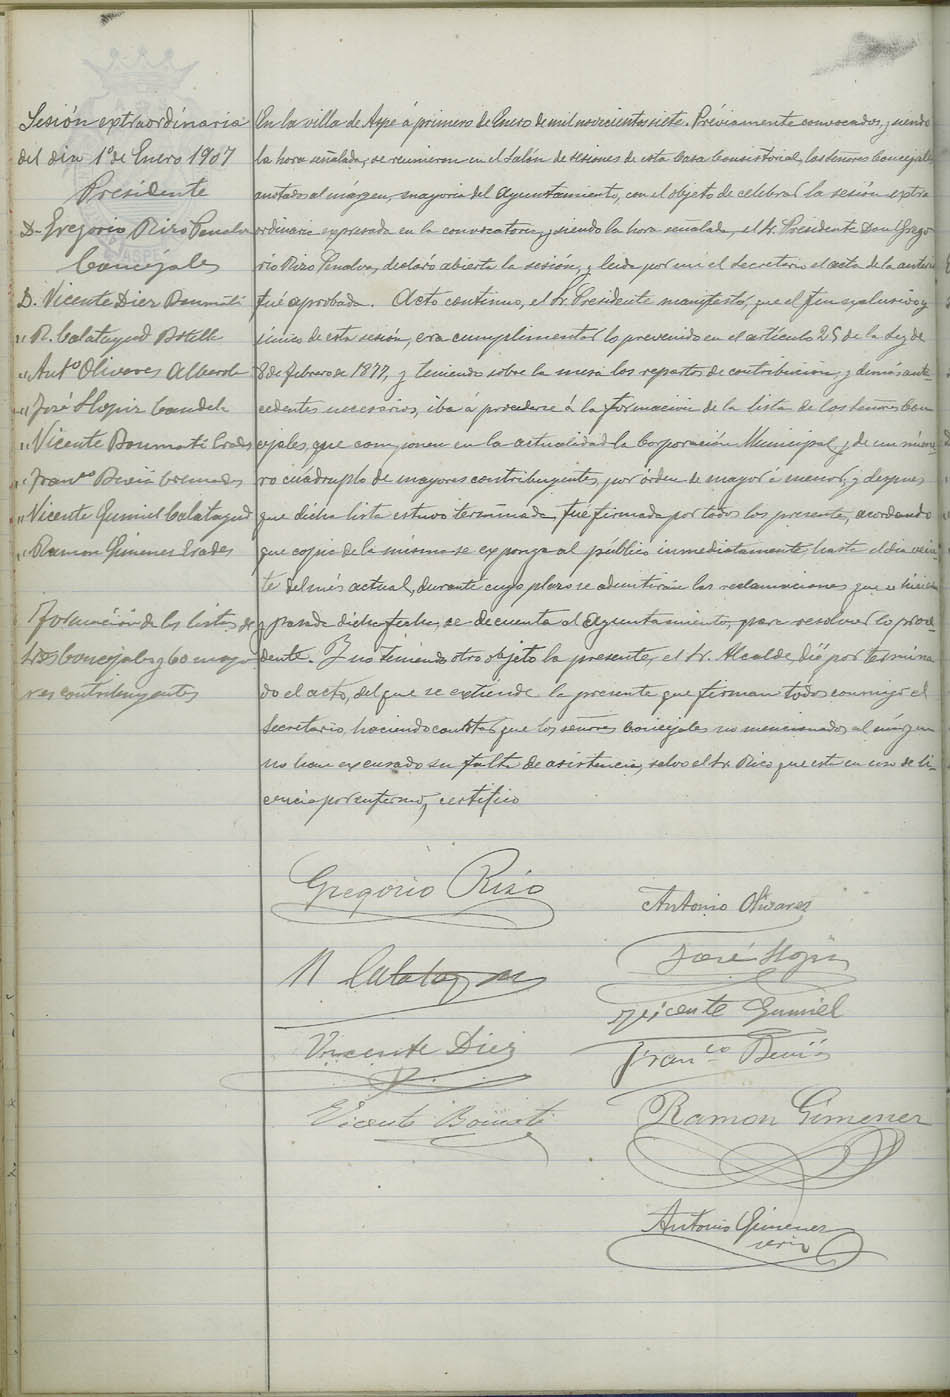 Sesión extraordinaria
del dia 1º de Enero 1907
Presidente
D. Gregorio Rizo Penalva
Concejales
D. Vicente Diez Bonmati
" R. Calatayud Botella
" Antº Olivares Alberola
" José Hopir Candela
" Vicente Bonmati Erades
" Franco Beviá Cremades
" Vicente Gumiel Calatayud
" Ramon Gimenez Erades
Formación de las listas de
Sres Concejales y 60 mayo
res contribuyentes
En la villa de Aspe á primero de Enero de mil novecientos siete. Préviamente convocados, y siendo
la hora señalada, se reunieron en el Salón de sesiones de esta Casa Consistorial, los señores Concejales
anotados al márgen, mayoria del Ayuntamiento, con el objeto de celebrar la sesión extra
ordinaria expresada en la convocatoria, y siendo la hora señalada, el Sr. Presidente Don Grego
rio Rizo Penalva, declaró abierta la sesión, y leida por mi el Secretario el acta de la anterior
fué aprobada. Acto continuo, el Sr. Presidente manifestó, que el fin esclusivo y
único de esta sesión, era cumplimentar lo prevenido en el artículo 25 de la Ley de
8 de Febrero de 1877, y teniendo sobre la mesa los repartos de contribucion, y demás ante-
cedentes necesarios, iba á procederse á la formación de la lista de los señores Con
cejales, que componen en la actualidad la Corporación Municipal, y de un núme-
ro cuádruplo de mayores contribuyentes, por órden de mayor á menor, y despues
que dicha lista estuvo terminada, fue firmada por todos los presentes, acordando
que copia de la misma se exponga al público inmediatamente, hasta el dia vein-
te del més actual, durante cuyo plazo se admitirán las reclamaciones que se hicieren
y pasada dicha fecha, se de cuenta al Ayuntamiento, para resolver lo proce-
dente. Y no teniendo otro objeto la presente, el Sr. Alcalde, dió por termina
do el acto, del que se extiende la presente que firman todos conmigo el
Secretario, haciendo constar que los señores Concejales no mencionados al márgen
no han excusado su falta de asistencia, salvo el Sr. Rico que esta en uso de li-
cencia por enfermo, certifico
Gregorio Rizo
Antonio Olivares
R Calatayud
José Hopir
Vicente Gumiel
Vicente Diez
Franco Beviá
Vicente Bonmati
Ramon Gimenez
Antonio Gimenez